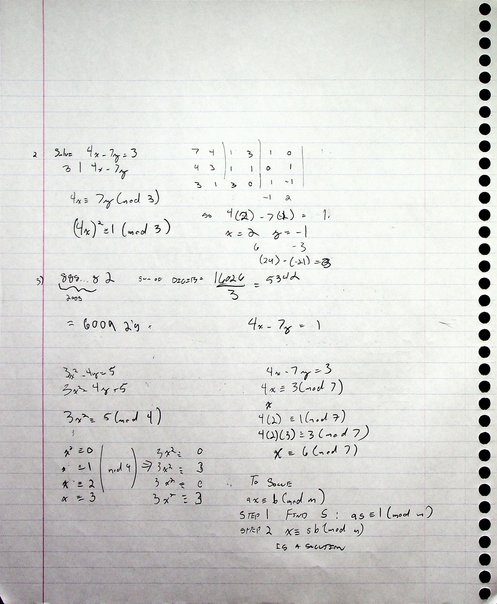 2 Solve 4x - 7y = 3
3 | 4x - 7y
4x ≡ 7y (mod 3)
(4x)² ≡ 1 (mod 3)
7 4 1 3 1 0
4 3 1 1 0 1
3 1 3 0 1 -1
-1 2
so 4(2) - 7(1) = 1.
x = 2 y = -1
6 -3
(24) - (-21) = 3
3) 888...8 2
2003
Sum of Digits =
16026/3 = 5342
= 6009 2's.
4x - 7y = 1
3x² - 4y = 5
3x² = 4y + 5
3x² ≡ 5 (mod 4)
x² ≡ 0 3x² ≡ 0
x ≡ 1 (mod 4) ⇒ 3x² ≡ 3
x ≡ 2 3x² ≡ 0
x ≡ 3 3x² ≡ 3
4x - 7y = 3
4x ≡ 3 (mod 7)
x
4(2) ≡ 1 (mod 7)
4(2)(3) ≡ 3 (mod 7)
x = 6 (mod 7)
To Solve
ax ≡ b (mod m)
STEP 1 FIND S : as ≡ 1 (mod m)
STEP 2 x ≡ sb (mod m)
IS A SOLUTION